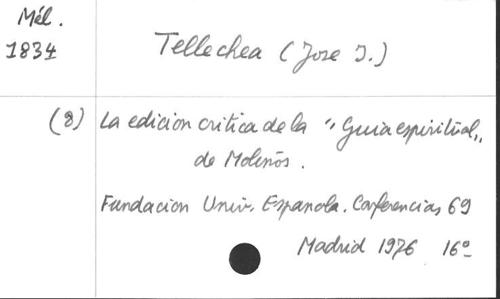 Mél.
1834
Tellechea (Jose I.)
(8) La edicion critica de la "Guia espiritual"
de Molinos.
Fundacion Univ. Espanola. Conferencias 69
Madrid 1976 16º